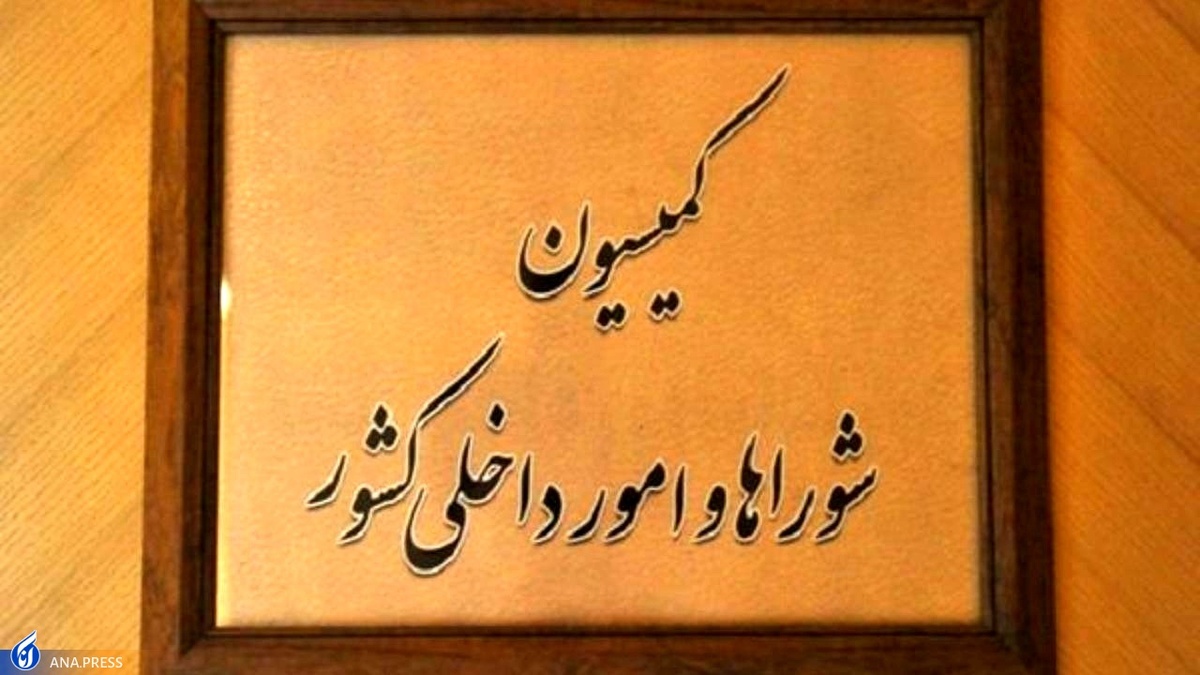 کمیسیون
شوراها و امور داخلی کشور
ANA.PRESS